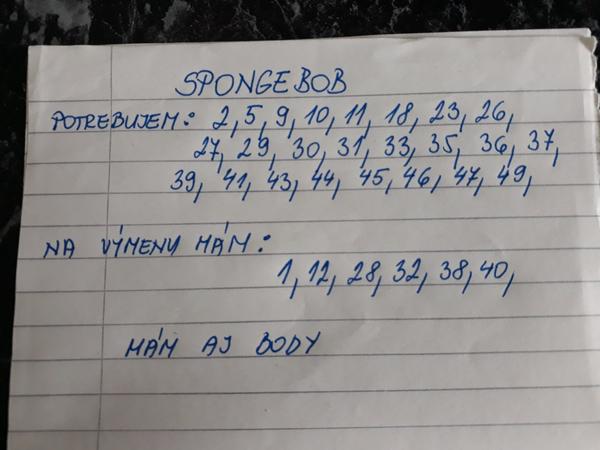 SPONGEBOB
POTREBUJEM: 2, 5, 9, 10, 11, 18, 23, 26,
27, 29, 30, 31, 33, 35, 36, 37,
39, 41, 43, 44, 45, 46, 47, 49,
NA VÝMENU MÁM:
1, 12, 28, 32, 38, 40,
MÁM AJ BODY